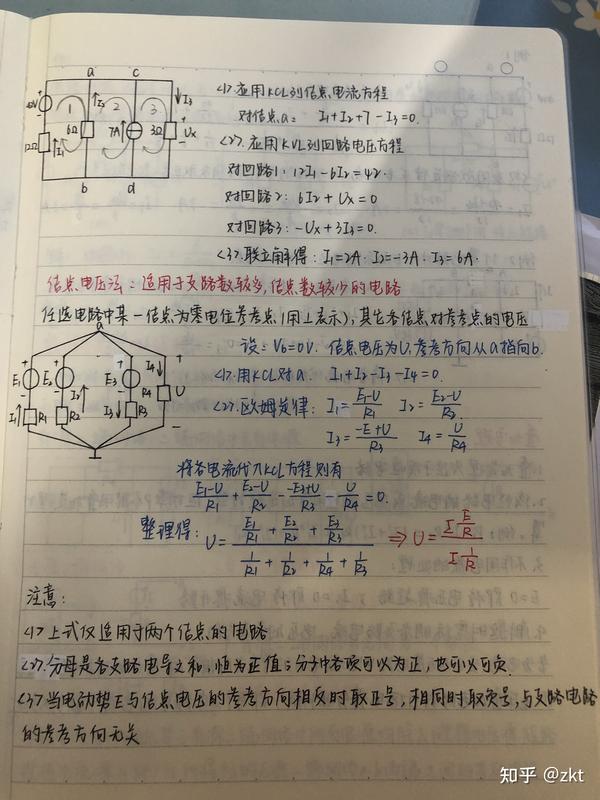 <1>应用KCL列结点电流方程
对结点a: I1+I2+7-I3=0.
<2>.应用KVL列回路电压方程
对回路1:12I1-6I2=42.
对回路2: 6I2+Ux=0
对回路3:-Ux+3I3=0.
<3>.联立解得: I1=2A. I2=-3A. I3=6A.
a c
42V 1 I2 2 3 I3
6Ω 7A 3Ω Ux
12Ω I1
b d
结点电压法:适用于支路数较多,结点数较少的电路
任选电路中某一结点为零电位参考点(用⊥表示),其它各结点对参考点的电压
设:Vb=0V. 结点电压为U,参考方向从a指向b.
<1>.用KCL对a. I1+I2-I3-I4=0.
<2>.欧姆定律: I1=E1-U/R1 I2=E2-U/R2.
I3=-E+U/R3 I4=U/R4
a
E1 E2 E3 I4
I2 R4 U
I1 R1 R2 I3 R3
将各电流代入KCL方程则有
E1-U/R1+E2-U/R2--E3+U/R3-U/R4=0.
整理得: U=E1/R1+E2/R2+E3/R3/1/R1+1/R2+1/R4+1/R3 ⇒ U=ΣE/R/Σ1/R
注意:
<1>上式仅适用于两个结点的电路
<2>.分母是各支路电导之和,恒为正值;分子中各项可以为正,也可以可负.
<3>当电动势E与结点电压的参考方向相反时取正号,相同时取负号,与支路电路
的参考方向无关
知乎 @zkt